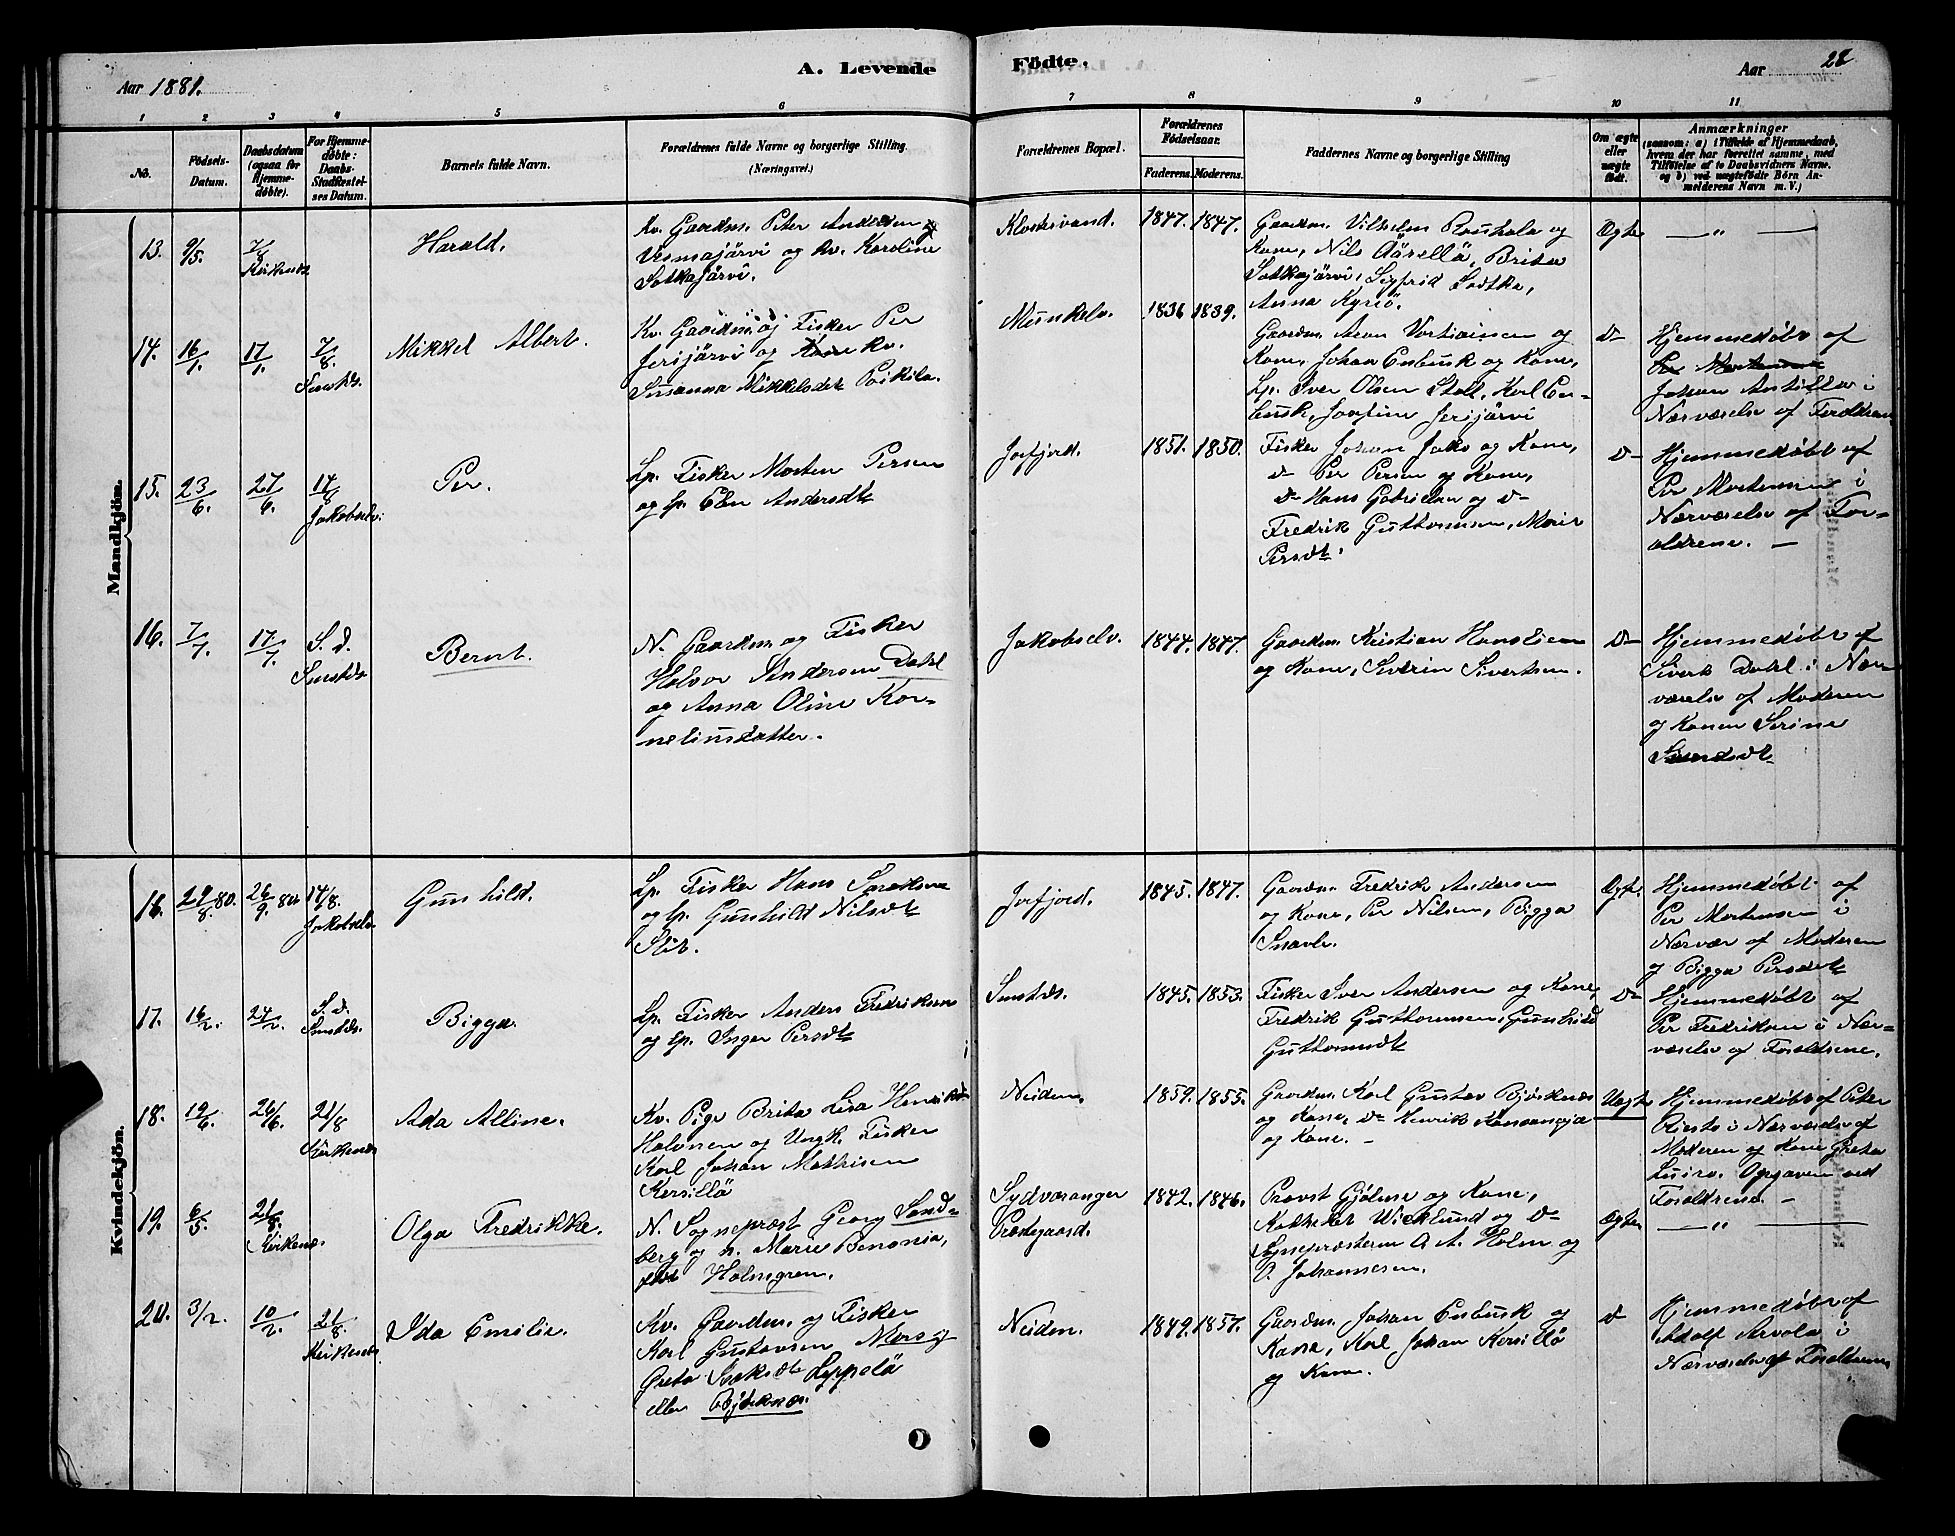 Aar 1881.
A. Levende
Födte.
Aar
28
1
2
3
4
5
6
7
8
9
10
11
No.
Födsels-
Datum.
Daabsdatum
(ogsaa for
Hjemme-
döbte).
For Hjemme-
döbte:
Daabs-
Stadfæstel-
ses Datum.
Barnets fulde Navn.
Forældrenes fulde Navne og borgerlige Stilling
(Næringsvei.)
Forældrenes Bopæl.
Forældrenes
Födselsaar.
Faderens.
Moderens.
Faddernes Navne og borgerlige Stilling
Om ægte
eller
uægte
født.
Anmærkninger
(saasom: a) i Tilfælde af Hjemmedaab,
hvem der har forrettet samme, med
Tilføielse af to Daabsvidners Navne,
og b) ved uægtefødte Börn An-
melderens Navn m. V.)
Mandkjön.
13.
9/5.
7/8
Kirkenes
Harald.
Kv. Gaardm. Peter Andersen
Vesmajärvi og kv. Karoline
Sotkajärvi.
Klostervand.
1847.
1847.
Gaardm. Vilhelm Rouhala og
Kone, Nils Äärellä, Brita
Sotkajärvi, Sigfrid Sotka,
Anna Kyrö.
Ægte
— " —
14.
16/1.
17/1.
7/8
Mikkel Albert.
Kv. Gaardm. og Fisker Per
Jerijärvi og kv.
Susanna Mikkelsdt Poikila.
Munkelv.
1836
1839.
Gaardm. Aron Vartiainen og
Kone, Johan Enbusk og Kone,
Lp. Iver Olsen Stall, Karl En-
busk, Josefine Jerijärvi
do
Hjemmedøbt af
Johan Antilla i
Nærværelse af Foreldrene
15.
23/6.
27/6.
14/8
Jakobselv.
Per.
Lp. Fisker Morten Persen
og lp. Elen Andersdt
Jarfjord.
1851.
1850.
Fisker Johan Jako og Kone,
do Per Persen og Kone,
do Hans Gabrielsen og do
Fredrik Guttormsen, Marie
Persdt.
do
Hjemmedøbt af
Per Mortensen i
Nærværelse af For-
ældrene. —
16.
7/7.
17/7.
S. d.
Bernt.
N. Gaardm. og Fisker
Halvor Andersen Dahl
og Anna Oline Kor-
neliusdatter.
Jakobselv.
1844.
1847.
Gaardm. Kristian Hansen
og Kone, Severin Sivertsen.
do
Hjemmedøbt af
Sivert Dahl i Nær-
værelse af Moderen
og Konen Serine
Kvindekjön.
16.
29/8.80.
26/9.80
14/8.
Jakobselv
Gunhild.
Lp. Fisker Hans
og lp. Gunhild Nilsdt
Slit.
Jarfjord.
1845.
1847.
Gaardm. Fredrik Andersen
og Kone, Per Nilsen, Bigga
Snavle.
Ægte.
Hjemmedøbt af
Per Mortensen i
Nærvær af Moderen
og Bigga Persdt
17.
16/2.
24/2.
S. d.
Bigga.
Lp. Fisker Anders Fredriksen
og lp. Inger Persdt
1845.
1853.
Fisker Iver Andersen og Kone,
Fredrik Guttormsen, Gunhild
Guttormsdt
do
Hjemmedøbt af
Per Fredriksen i Nær-
værelse af Forældrene.
18.
19/6.
26/6.
21/8
Kirkenes
Ada Alline.
Kv. Pige Brita Lisa Henriksdt
Halonen og Ungk. Fisker
Karl Johan Mathisen
Kersillö
Neiden.
1859.
1855.
Gaardm. Karl Gustav Bjørknes
og Kone, do Henrik
og Kone. —
Uægte
Hjemmedøbt af Peter
i Nærværelse af
Moderen og Kone Greta
Luiro. Opgaven ved
Forældrene. —
19.
6/5.
21/8.
Kirkenes.
Olga Fredrikke.
N. Sognepræst Georg Sand-
berg og n. Marie Benonia,
født Holmgren.
Sydvaranger
Prestegaard.
1842.
1846.
Provst Gjölme og Kone,
Kateket Wicklund og do
Sognepræsterne A. A. Holm og
O. Johannesen.
Ægte
— " —
20.
3/2.
10/2.
21/8.
Kirkenes
Ida Emilie.
Kv. Gaardm. og Fisker
Karl Gustavsen Mers og
Greta Isaksdt Leppälä
eller Björknes.
Neiden.
1849.
1857.
Gaardm. Johan Enbusk og
Kone, Karl Johan Kersillö
og Kone.
do
Hjemmedøbt af
Adolf Arvola i
Nærværelse af Forældrene